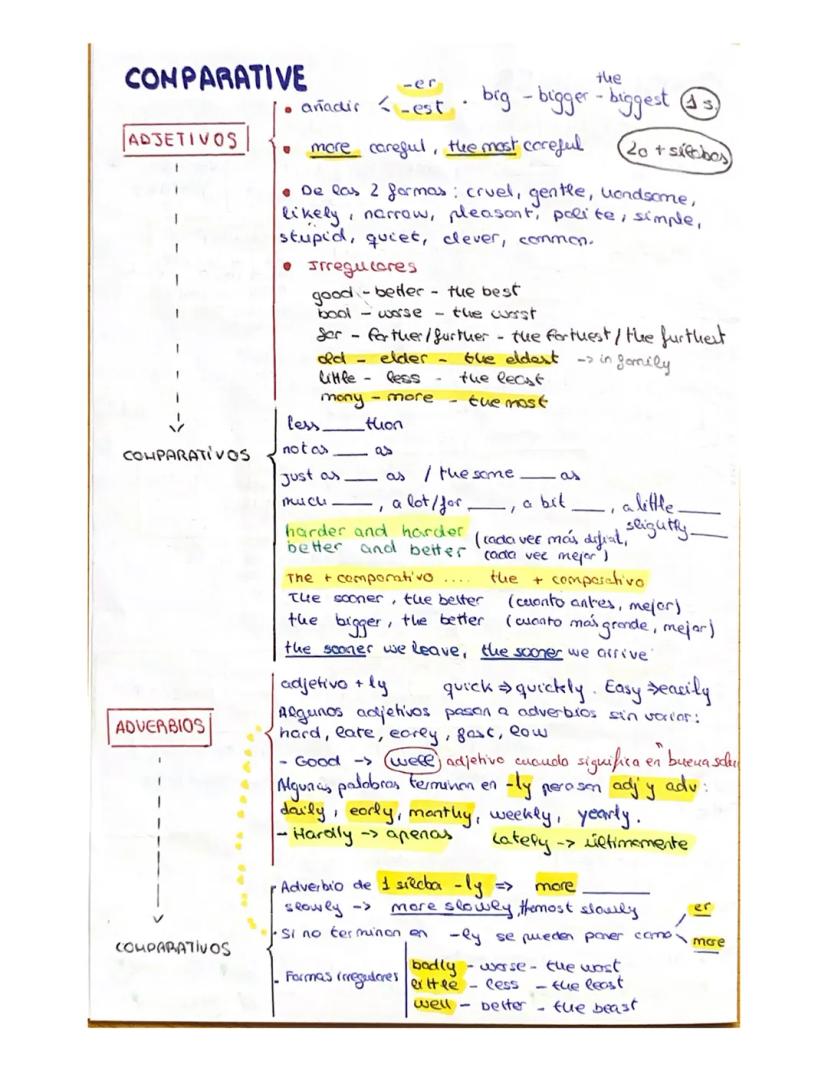 COMPARATIVE
ADJETIVOS
• añadir -er -est · big - bigger - the biggest 1 s.
• more careful, the most careful 2 o + sílabas
• De las 2 formas: cruel, gentle, handsome,
likely, narrow, pleasant, polite, simple,
stupid, quiet, clever, common.
• Irregulares
good - better - the best
bad - worse - the worst
far - farther/further - the farthest / the furthest
old - elder - the eldest -> in family
little - less - the least
many - more - the most
COMPARATIVOS
less ____ than
not as ____ as
just as ____ as / the same ____ as
much ____, a lot/far ____, a bit ____, a little ____
slightly ____
harder and harder (cada vez más difícil,
better and better cada vez mejor)
The + comparativo .... the + comparativo
The sooner, the better (cuanto antes, mejor)
the bigger, the better (cuanto más grande, mejor)
the sooner we leave, the sooner we arrive
ADVERBIOS
adjetivo + ly quick => quickly. Easy => easily
Algunos adjetivos pasan a adverbios sin variar:
hard, late, early, fast, low
- Good -> well adjetivo cuando significa en "buena salu
Algunas palabras terminan en -ly pero son adj y adv:
daily, early, monthy, weekly, yearly.
- Hardly -> apenas Lately -> últimamente
COMPARATIVOS
Adverbio de 1 sílaba -ly => more ____
slowly -> more slowly, the most slowly
· Si no terminan en -ly se pueden poner como er more
- Formas irregulares
badly - worse - the worst
little - less - the least
well - better - the beast